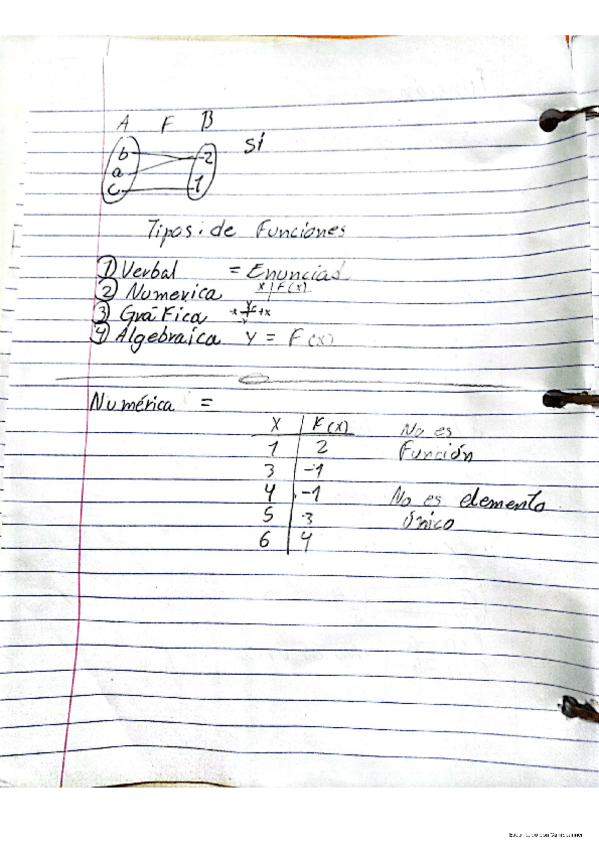 A F B
b
a
c
2
1
Sí
Tipos de Funciones
① Verbal = Enuncias
② Numerica x | F(x)
③ Gráfica -x y +x -y
④ Algebraica Y = F(x)
Numérica =
X | F(x)
1 | 2
3 | -1
4 | -1
5 | 3
6 | 4
No es
Función
No es elemento
único